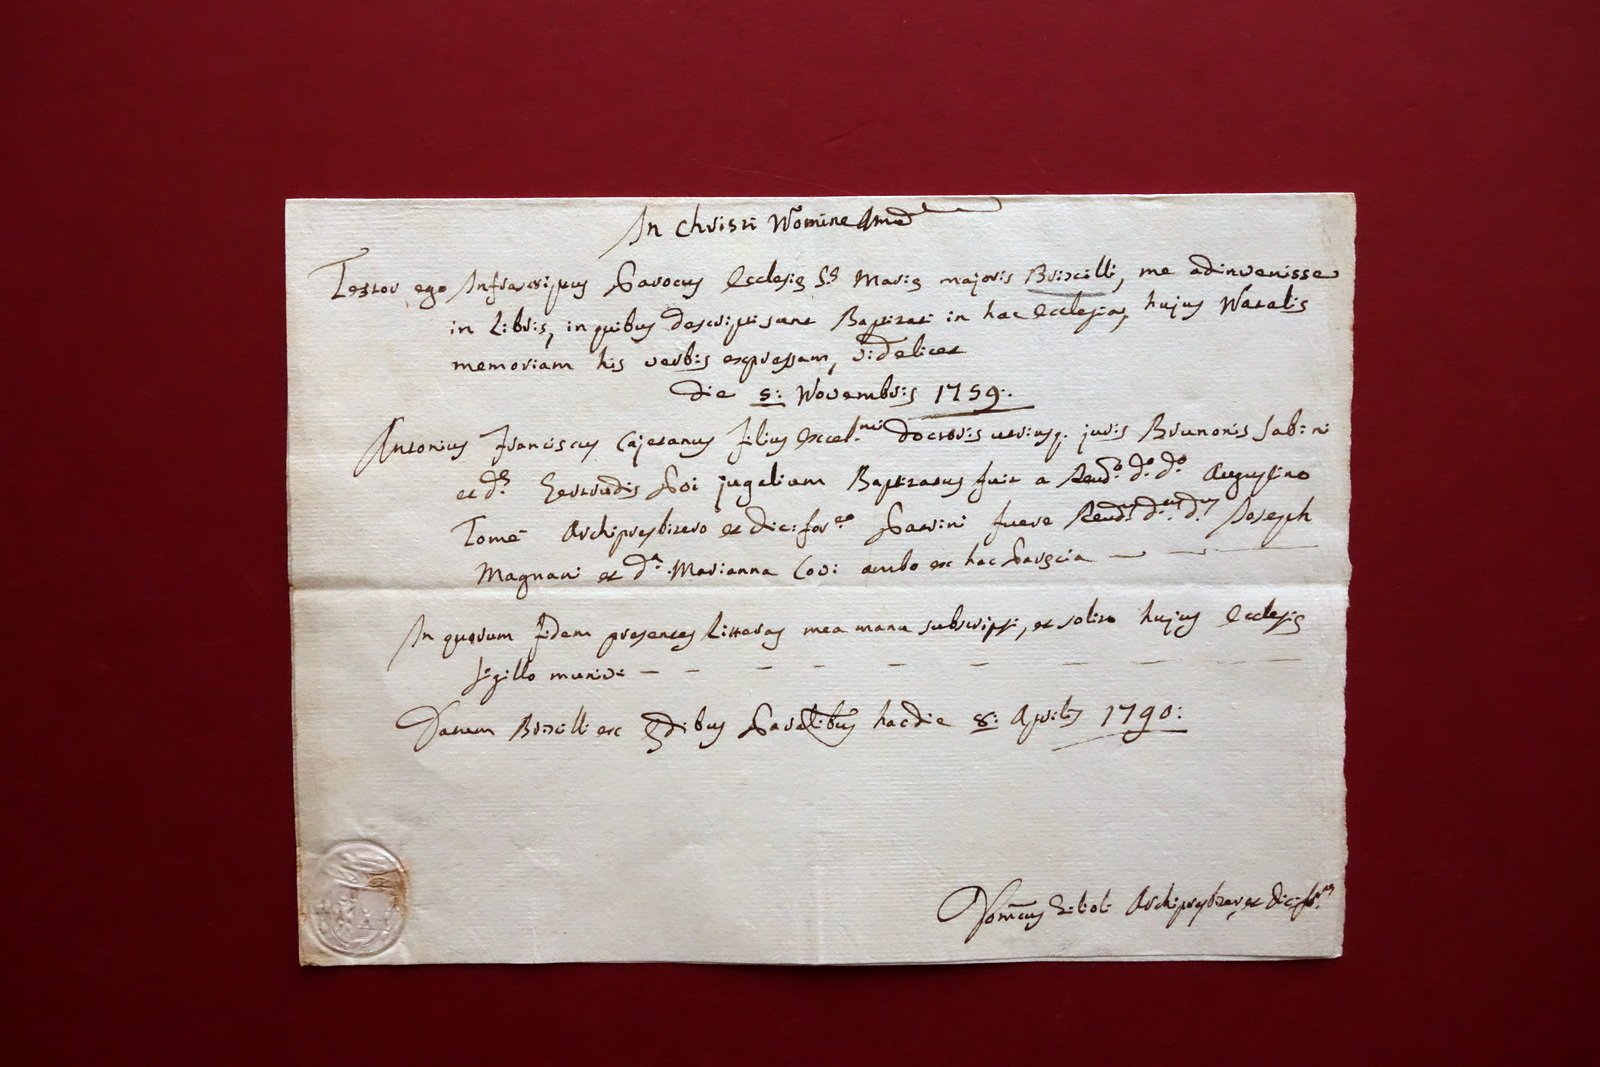 In Christi Nomine Amen
Testor ego Infrascriptus Parocus Ecclesię Sę Marię majoris Brixilli, me adinvenisse
in Libris, in quibus descripti sunt Baptizati in hac Ecclesia, hujus Natalis
memoriam his verbis expressam, videlicet
Die 5: Novembris 1759:
Antonius Franciscus Cajetanus filius Excel.mi Doctoris utriusq. juris Brunonis Sabini
et D.ę Gertrudis Poi jugalium Baptizatus fuit a Rend.o D.o D.o Augustino
Tomè Archipresbitero et Vic: for.eo Patrini fuere Rend.us D.us D.us Joseph
Magnani et D.a Marianna Covi ambo ex hac Paręcia
In quorum fidem presentes Litteras mea manu subscripsi, et solito hujus Ecclesię
sigillo munivi
Datum Brixilli ex Ędibus Paralibus hac die 8: Aprilis 1790:
Archipresbiter et Vic: for.us